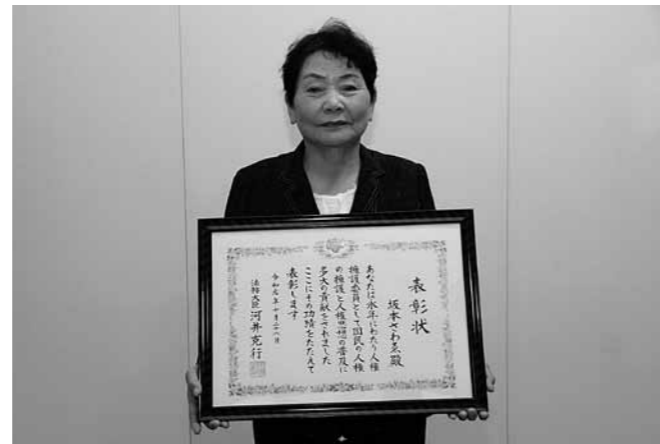 表彰状
坂本さわゑ殿
あなたは永年にわたり人権
擁護委員として国民の人権
の擁護と人権思想の普及に
多大の貢献をされました
ここにその功績をたたえて
表彰します
令和元年十月二十八日
法務大臣 河井克行